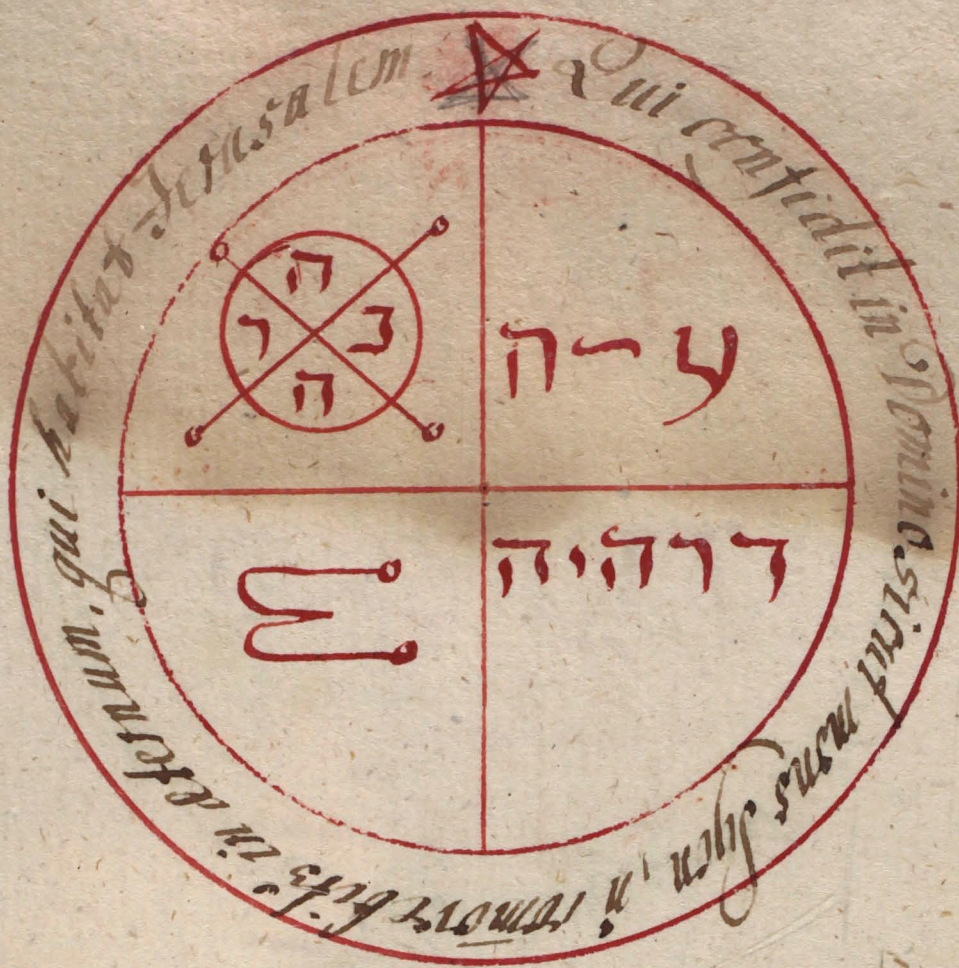 Qui confidit in Domino sicut mons Syon, ñ comovebit' in eternum, qui habitat Jerusalem.
ה
ר ב
ה
ע־ה
דרהיה